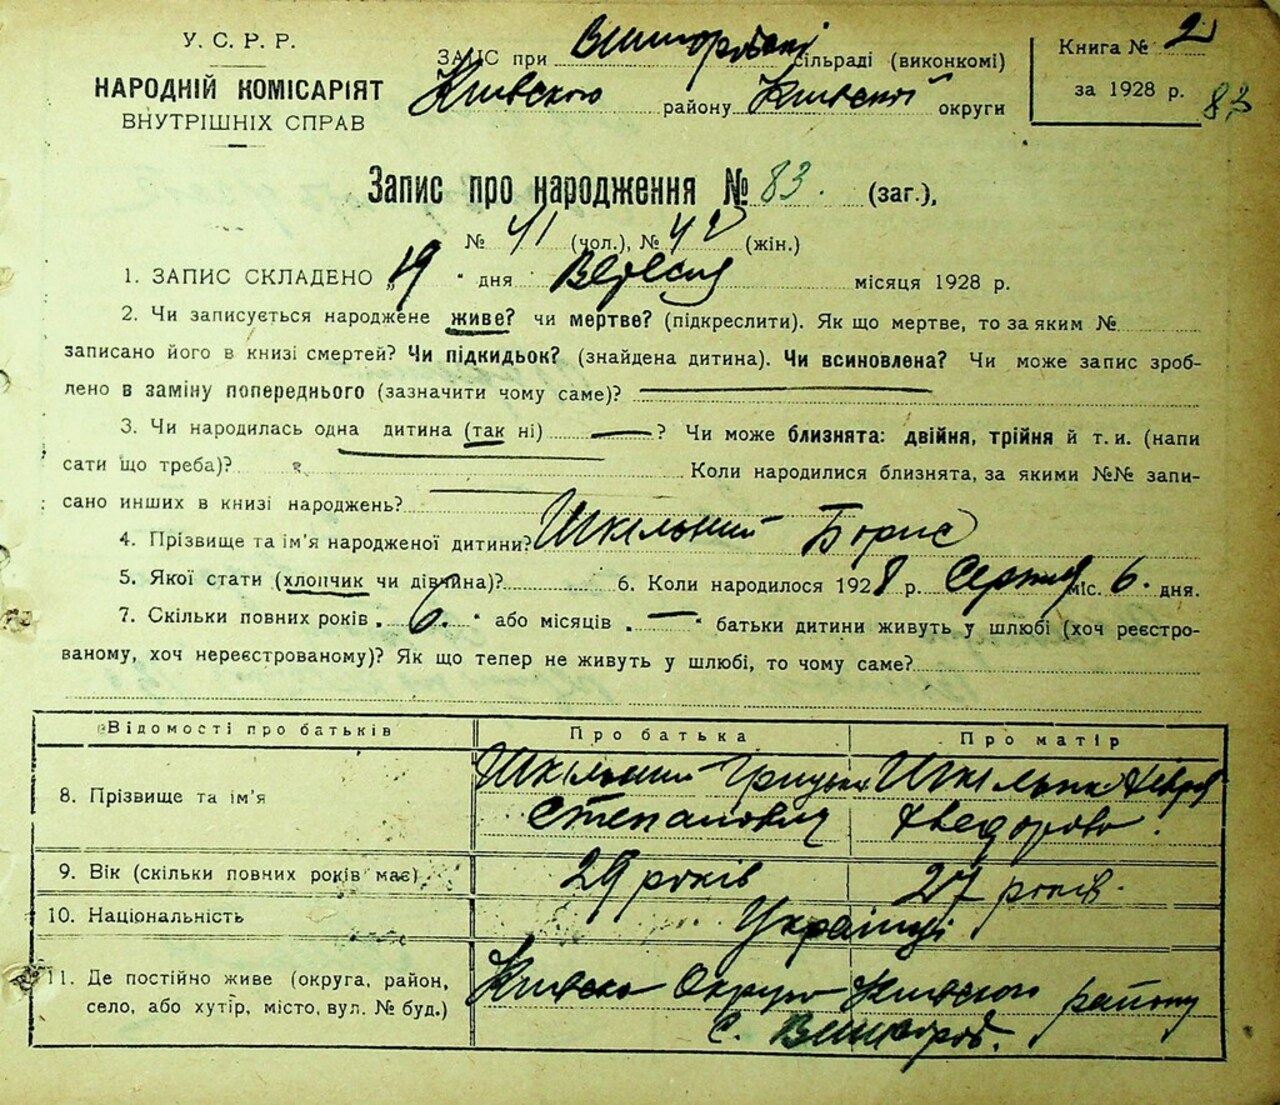 У. С. Р. Р.
НАРОДНІЙ КОМІСАРІЯТ
ВНУТРІШНІХ СПРАВ
ЗАПИС при Вишгородські сільраді (виконкомі)
Київского району Київської округи
Книга № 2
за 1928 р. 83
Запис про народження № 83. (заг.),
№ 41 (чол.), № 42 (жін.)
1. ЗАПИС СКЛАДЕНО „19 " дня Вересня місяця 1928 р.
2. Чи записується народжене живе? чи мертве? (підкреслити). Як що мертве, то за яким №
записано його в книзі смертей? Чи підкидьок? (знайдена дитина). Чи всиновлена? Чи може запис зроб-
лено в заміну попереднього (зазначити чому саме)? —
3. Чи народилась одна дитина (так ні) — ? Чи може близнята: двійня, трійня й т. и. (напи
сати що треба)? Коли народилися близнята, за якими №№ запи-
сано инших в книзі народжень?
4. Прізвище та ім'я народженої дитини? Шкільний Борис
5. Якої стати (хлопчик чи дівчина)? 6. Коли народилося 1928 р. Серпня міс. 6. дня.
7. Скільки повних років „ 6. " або місяців „ — " батьки дитини живуть у шлюбі (хоч реєстро-
ваному, хоч нереєстрованому)? Як що тепер не живуть у шлюбі, то чому саме?
Відомості про батьків Про батька Про матір
8. Прізвище та ім'я Шкільний Грицько Шкільна
Степанович Хведорова.
9. Вік (скільки повних років має) 29 років 27 років.
10. Національність Українці
11. Де постійно живе (округа, район, Київска Округа Київского району
село, або хутір, місто, вул. № буд.) с. Вишгород.